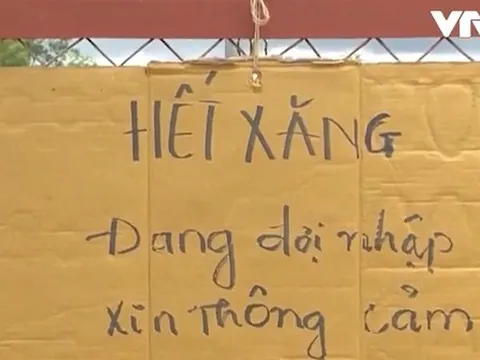 VTV
HẾT XĂNG
Đang đợi nhập
xin thông cảm